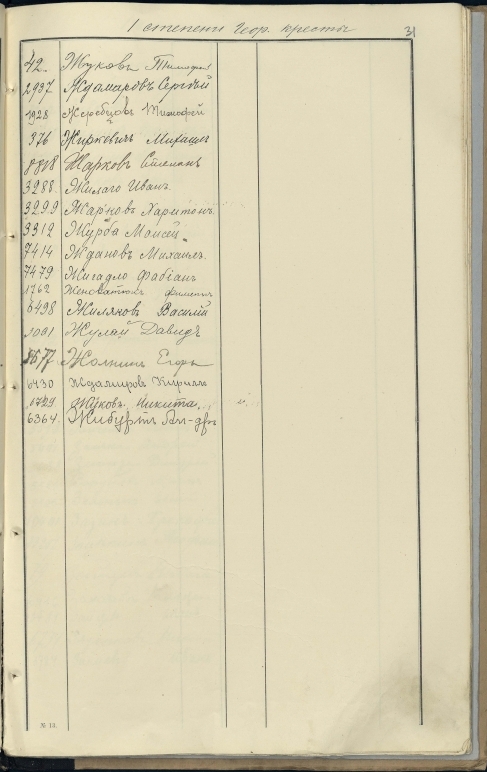 1 степени Геор. кресты 31
42. Жуковъ Тимофей
2937 Ждамаровъ Сергѣй
1928 Жеребцовъ Тимофей
376 Жиркевичъ Михаилъ
8818 Жарковъ Степанъ
3288. Жилаго Иванъ
3299 Жарковъ Харитонъ
3312 Журба Моисей
7414 Ждановъ Михаилъ
7479 Жигадло Фабіанъ
1762
6498 Жиляковъ Василій
Жулай Давидъ
Егоръ
6430 Ждамировъ Кириллъ
1729 Жуковъ Никита
6364 Жибуртъ Ал-дръ
№ 10.